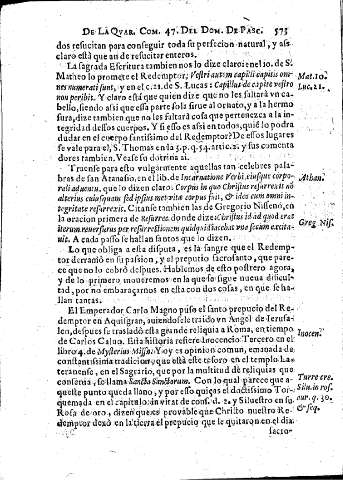 DE LA QVAR. COM. 47. DEL DOM. DE PASC. 575
dos resucitan para conseguir toda su perfecion natural, y assi
claro està que an de resucitar enteros.
La sagrada Escritura tambien nos lo dize claro: el 10. de S.
Matheo lo promete el Redemptor; Vestri autem capilli capitis om-
nes numerati sunt, y en el c. 21. de S. Lucas: Capillus de capite vestro
non peribit. Y claro està que quien dize que no les faltarà vn ca-
bello, siendo assi que essa parte sola sirue al ornato, y a la hermo
sura, dize tambien que no les faltarà cosa que pertenezca a la in-
tegridad dessos cuerpos. Y si esso es assi en todos, què lo podra
dudar en el cuerpo santissimo del Redemptor? De essos lugares
se vale para el, S. Thomas en la 3. p. q. 54. artic. 2. y sus comenta
dores tambien. Vease su dotrina ai.
Mat. 10.
Luc. 21.
Traense para esto vulgarmente aquellas tan celebres pala-
bras de san Atanasio, en el lib. de Incarnatione Verbi, eiusque corpo-
rali aduentu, que lo dizen claro. Corpus in quo Christus resurrexit nō
alterius cuiusquam sed ipsius metvirtu corpus fuit, & ideo cum omni in-
tegritate resurrexit. Citanse tambien las de Gregorio Nisseno, en
la oracion primera de Resurrec. donde dize: Christus id quod erat
iterum reuersurus per resurrectionem quidquid iacebat vna secum excita-
uit. A cada passo se hallan santos que lo dizen.
Athan.
Greg. Niss.
Lo que obliga a esta disputa, es la sangre que el Redemp-
tor derramò en su passion, y el prepucio sacrosanto, que pare-
ce que no lo cobrò despues. Hablemos de esto postrero agora,
y de lo primero moueremos en la que se sigue nueua dificul-
tad, por no embaraçarnos en esta con dos cosas, en que se ha-
llan tantas.
El Emperador Carlo Magno puso el santo prepucio del Re-
demptor en Aquisgran, auiendosele traido vn Angel de Ierusa-
len, despues se trasladò esta grande reliquia a Roma, en tiempo
de Carlos Caluo. Esta historia refiere Inocencio Tercero en el
libro 4. de Mysterius Missæ: Y oy es opinion comun, emanada de
constantissima tradicion, que està este tesoro en el templo La-
teranense, en el Sagrario, que por la multitud de reliquias que
conserua, se llama Sancta Sanctorum. Con lo qual parece que a-
queste punto queda llano, y por esso quiças el doctissimo Tor-
quemada en el capitulo: in vitat de cons. d. 2. y Siluestro en su
Rosa de oro, dizen que es prouable que Christo nuestro Re-
demptor dexò en la tierra el prepucio que le quitaron en el dia
Inocen.
Turre cre.
Silu. in ros.
aur. q. 30.
& seq.
sacro-